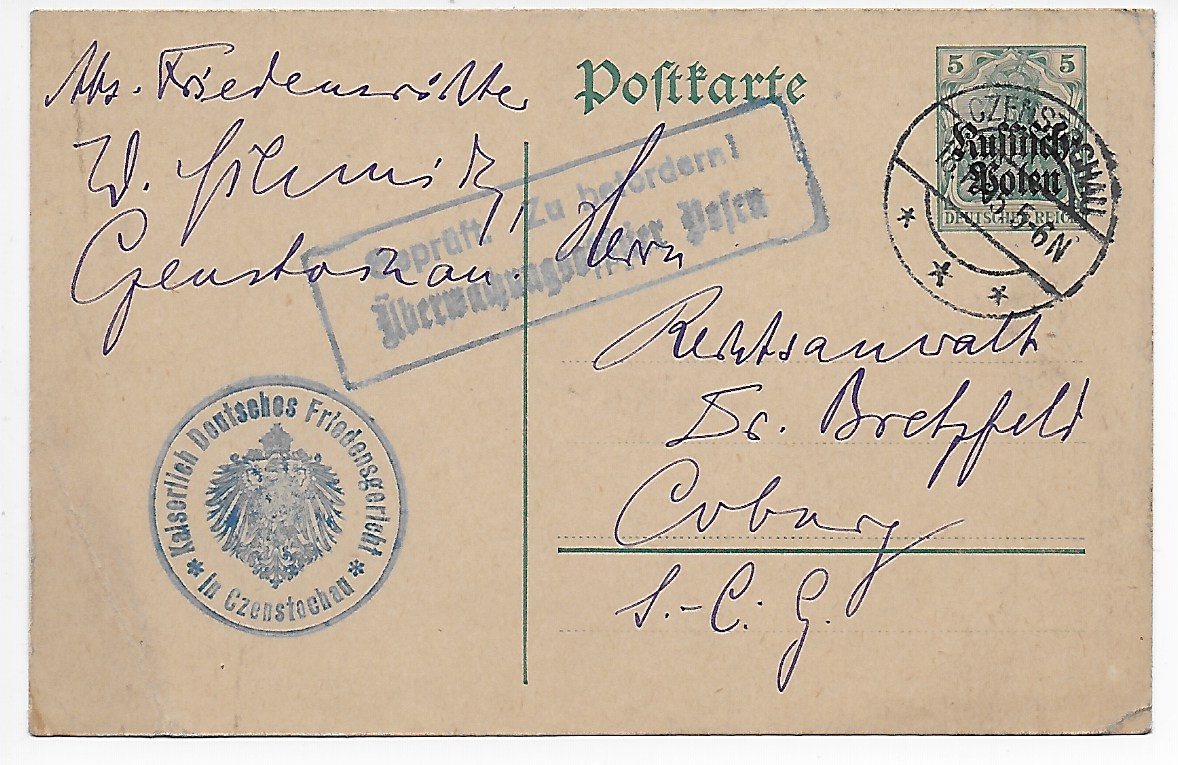 Postkarte
5 5
Russisch-
Polen
DEUTSCHES REICH
CZENSTOCHAU
5-6N
Abs. Friedensrichter
W. Schmitz,
Czenstochau.
Geprüft. Zu befördern!
Überwachungsoffizier Posen
Herrn
Rechtsanwalt
Dr. Bretzfeld
Coburg
S.-C. G.
Kaiserlich Deutsches Friedensgericht
* in Czenstochau *